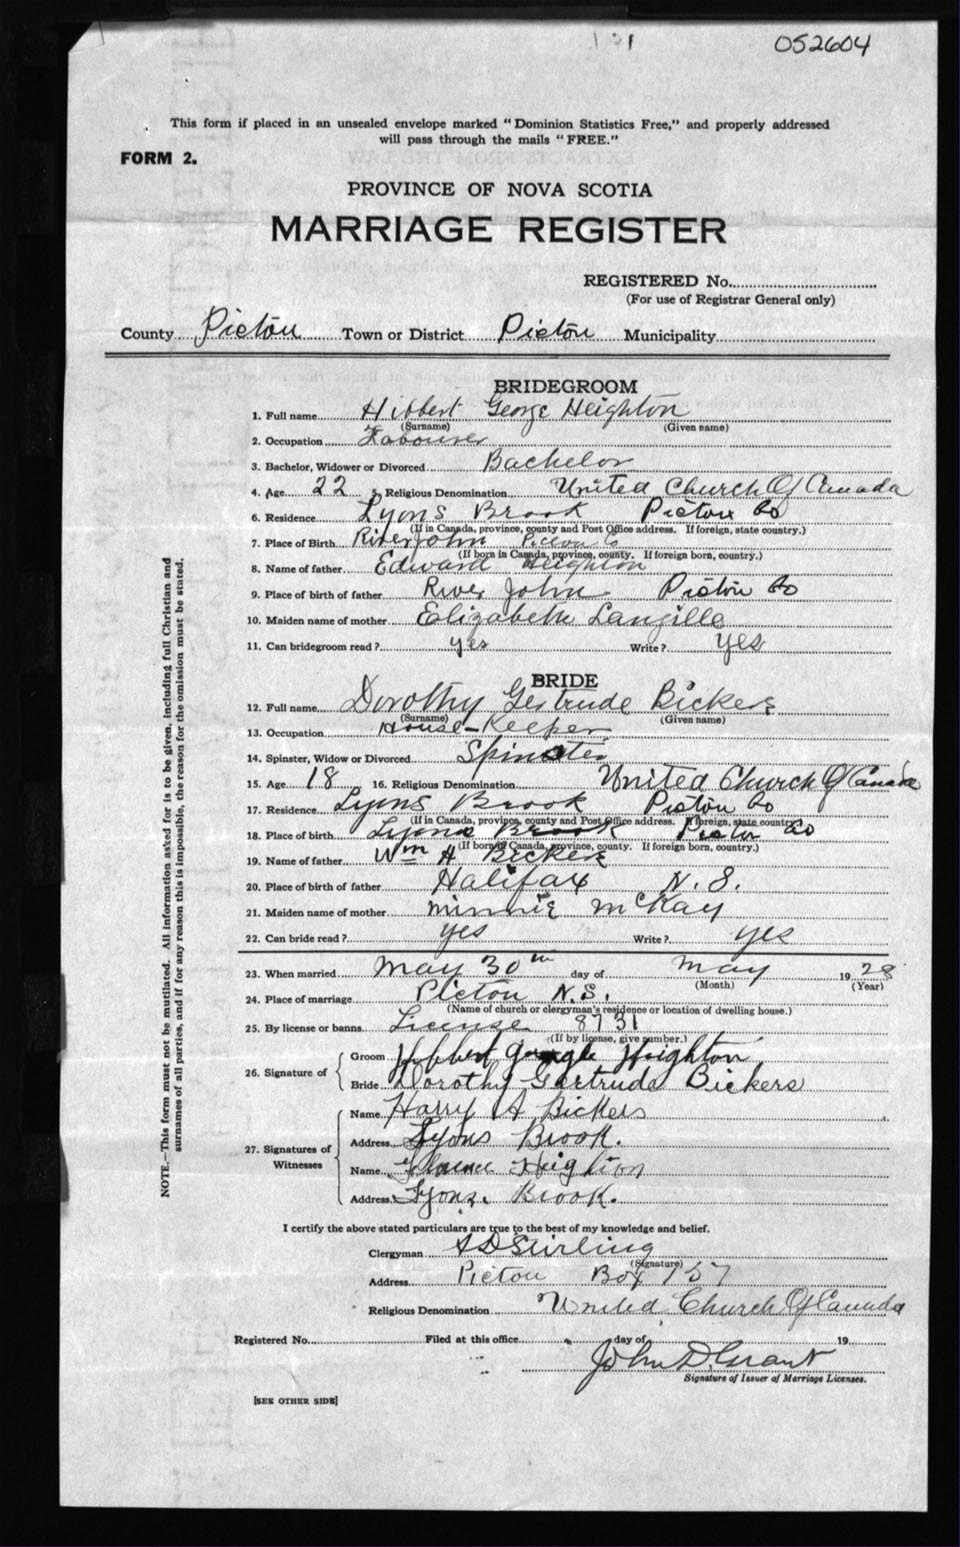 052604
This form if placed in an unsealed envelope marked "Dominion Statistics Free," and properly addressed
will pass through the mails "FREE."
FORM 2.
PROVINCE OF NOVA SCOTIA
MARRIAGE REGISTER
REGISTERED No.
(For use of Registrar General only)
County Pictou Town or District Pictou Municipality
BRIDEGROOM
1. Full name Hibbert George Heighton
(Surname) (Given name)
2. Occupation Labourer
3. Bachelor, Widower or Divorced Bachelor
4. Age 22 5. Religious Denomination United Church Of Canada
6. Residence Lyons Brook Pictou Co
(If in Canada, province, county and Post Office address. If foreign, state country.)
7. Place of Birth River John Pictou Co
(If born in Canada, province, county. If foreign born, country.)
8. Name of father Edward Heighton
9. Place of birth of father River John Pictou Co
10. Maiden name of mother Elizabeth Langille
11. Can bridegroom read? yes Write? yes
BRIDE
12. Full name Dorothy Gertrude Bickers
(Surname) (Given name)
13. Occupation House-Keeper
14. Spinster, Widow or Divorced Spinster
15. Age 18 16. Religious Denomination United Church Of Canada
17. Residence Lyons Brook Pictou Co
(If in Canada, province, county and Post Office address. If foreign, state country.)
18. Place of birth Lyons Brook Pictou Co
(If born in Canada, province, county. If foreign born, country.)
19. Name of father Wm H Bickers
20. Place of birth of father Halifax N.S.
21. Maiden name of mother Minnie McKay
22. Can bride read? yes Write? yes
23. When married May 30th day of May 1928
(Month) (Year)
24. Place of marriage Pictou N.S.
(Name of church or clergyman's residence or location of dwelling house.)
25. By license or banns License 8731
(If by license, give number.)
26. Signature of Groom Hibbert George Heighton
Bride Dorothy Gertrude Bickers
27. Signatures of Witnesses Name Harry A Bickers
Address Lyons Brook.
Name Florence Heighton
Address Lyons Brook.
I certify the above stated particulars are true to the best of my knowledge and belief.
Clergyman A D Stirling
(Signature)
Address Pictou Box 157
Religious Denomination United Church Of Canada
Registered No. Filed at this office day of 19
John D. Grant
Signature of Issuer of Marriage Licenses.
[SEE OTHER SIDE]
NOTE.—This form must not be mutilated. All information asked for is to be given, including full Christian and
surnames of all parties, and if for any reason this is impossible, the reason for the omission must be stated.